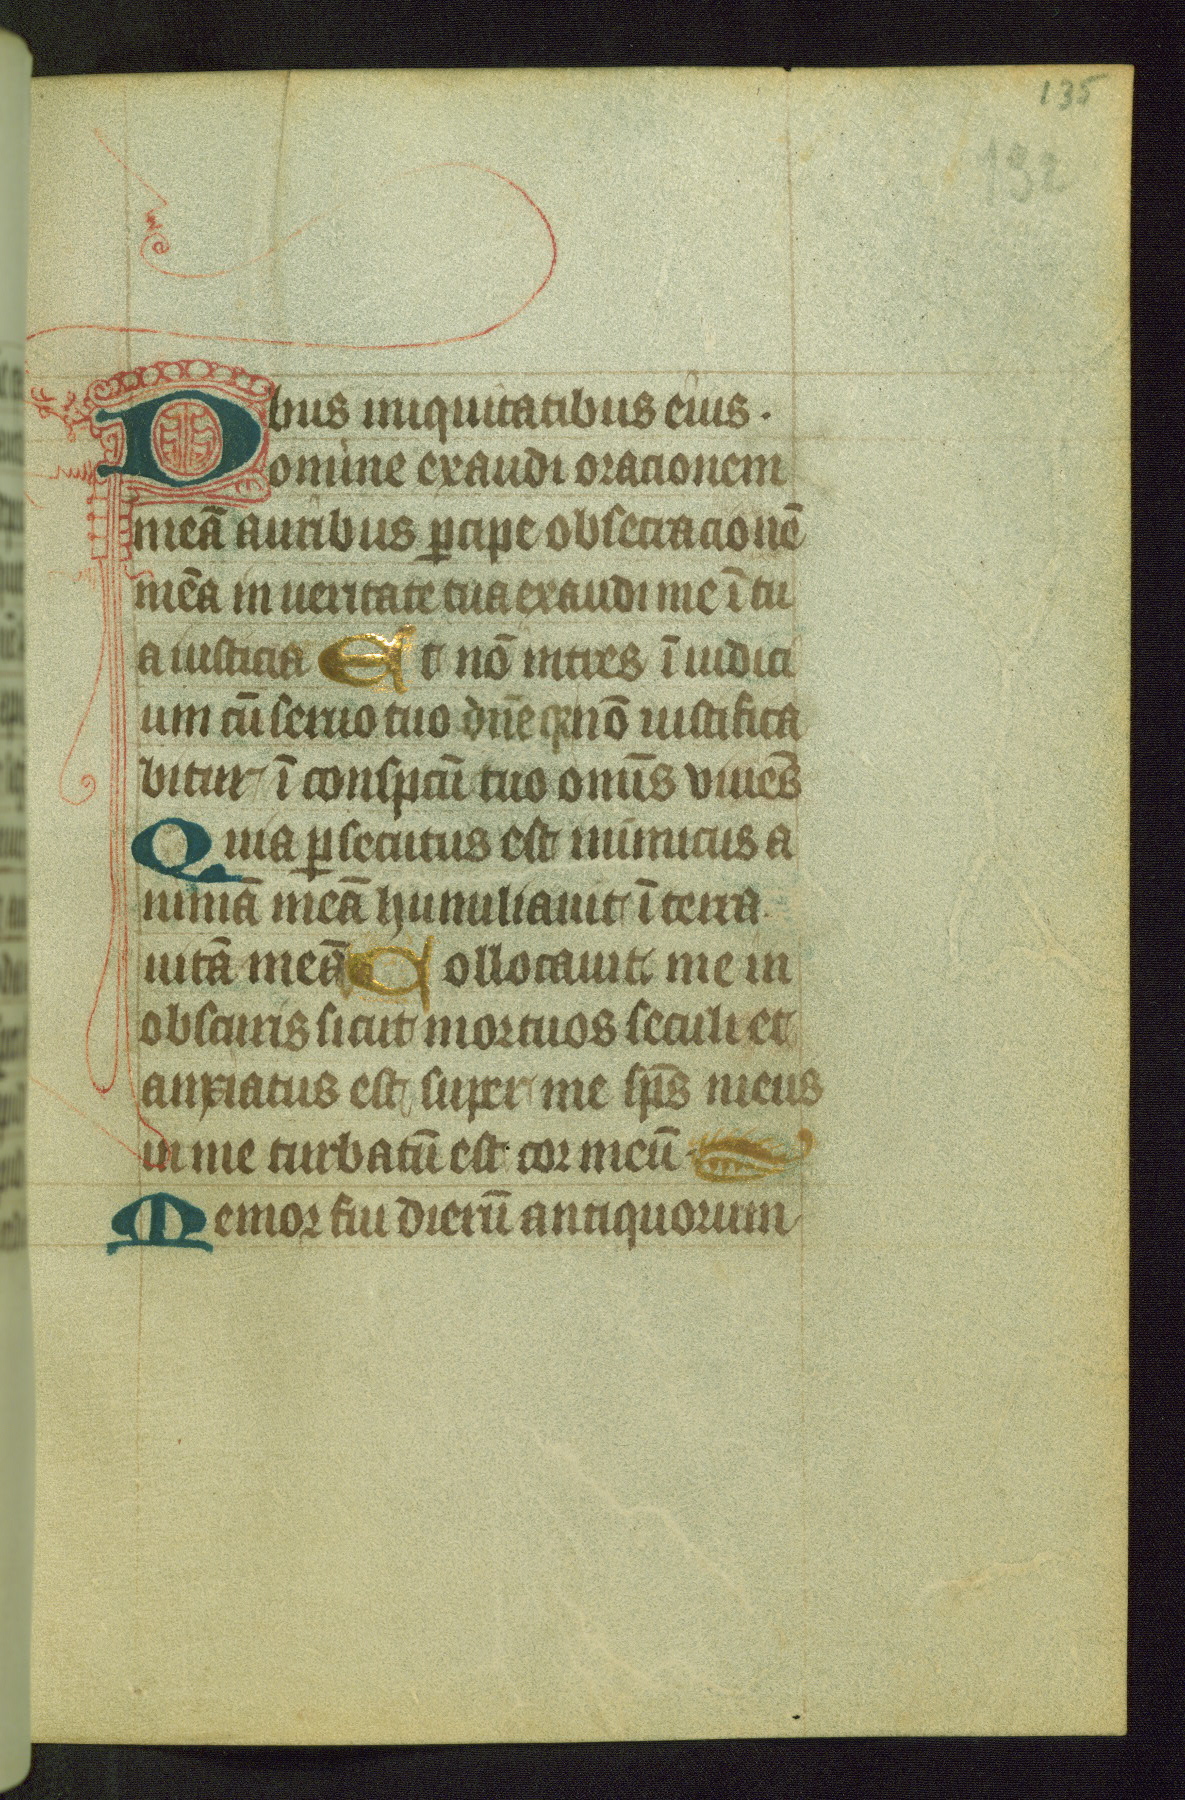 135
132
bus iniquitatibus eius .
Domine exaudi orationem
meā auribus ꝑcipe obsecracionē
mēa in ueritate tua exaudi me ī tu
a iusticia Et nō intres ī iudici
um cū seruo tuo dn̄e qr nō iustifica
bitur ī conspcū tuo omīs viuēs
Quia ꝑsecutus est inimicus a
nimā meā humiliauit ī terra
uitā meā Collocauit me in
obscuris sicut mortuos seculi et
anxiatus est super me sp̄s meus
in me turbatū est cor meū
Memor fui dierū antiquorum